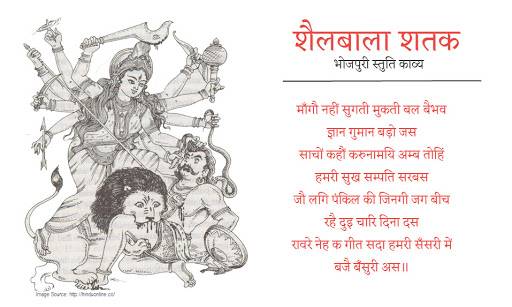 शैलबाला शतक
भोजपुरी स्तुति काव्य
माँगौ नहीं सुगती मुकती बल बैभव
ज्ञान गुमान बड़ो जस
साचों कहौं करुनामयि अम्ब तोहिं
हमरी सुख सम्पति सरबस
जौ लगि पंकिल की जिनगी जग बीच
रहै दुइ चारि दिना दस
रावरे नेह क गीत सदा हमरी सँसरी में
बजै बँसुरी अस॥
Image Source: http://hinduonline.co/